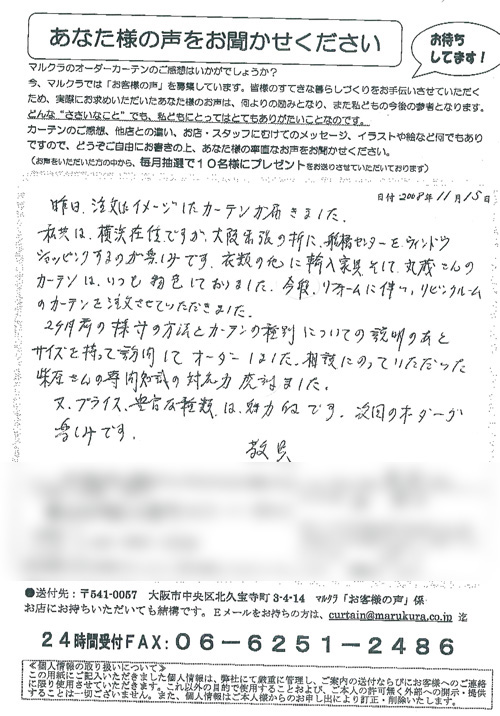 あなた様の声をお聞かせください
お待ち
してます!
マルクラのオーダーカーテンのご感想はいかがでしょうか?
今、マルクラでは「お客様の声」を募集しています。皆様のすてきな暮らしづくりをお手伝いさせていただく
ため、実際にお求めいただいたあなた様のお声は、何よりの励みとなり、また私どもの今後の参考となります。
どんな“ささいなこと”でも、私どもにとってはとてもありがたいことなのです。
カーテンのご感想、他店との違い、お店・スタッフにむけてのメッセージ、イラストや絵など何でもあり
ですので、どうぞご自由にお書きの上、あなた様の率直なお声をお聞かせください。
(お声をいただいた方の中から、毎月抽選で10名様にプレゼントをお送りさせていただいております)
日付 2008年11月15日
昨日、注文したイメージしたカーテンが届きました。
私共は、横浜在住ですが、大阪出張の折に、船橋センターをウィンドウ
ショッピングするのが楽しみです。衣類の他に輸入家具そして、丸蔵さんの
カーテンは、いつも物色しておりました。今般、リフォームに伴い、リビングルーム
のカーテンを注文させていただきました。
2ヶ月前の採寸の方法とカーテンの種別についての説明のあと
サイズを持って訪問してオーダーしました。相談にのっていただだった
さんの専門知識の対応力 ました。
又、プライス、豊富な種類は、魅力的です。次回のオーダーが
楽しみです。
敬具
●送付先:〒541-0057 大阪市中央区北久宝寺町3-4-14 マルクラ「お客様の声」係
お店にお持ちいただいても結構です。Eメールをお持ちの方は、curtain@marukura.co.jp 迄
24時間受付FAX:06-6251-2486
≪個人情報の取り扱いについて≫
この用紙にご記入いただきました個人情報は、弊社にて厳重に管理し、ご案内の送付ならびにお客様へのご連絡
に限り使用させていただきます。これ以外の目的で使用することおよび、ご本人の許可無く外部への開示・提供
することは一切ございません。また、個人情報はご本人様からのお申し出により訂正・削除いたします。